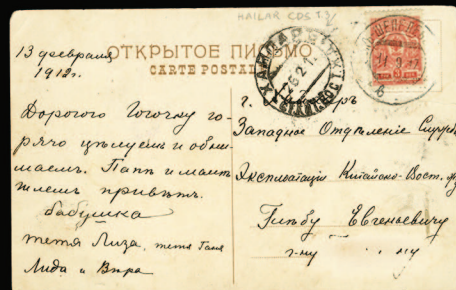 HAILAR CDS
13 февраля
1912г.
ОТКРЫТОЕ ПИСЬМО
CARTE POSTALE
ХАЙЛАРЪ
Дорогого Гогочку го-
рячо цѣлуемъ и обни-
маемъ. Папѣ и мамѣ
шлемъ привѣтъ.
бабушка
тетя Лиза, тетя Таня
Лида и Вѣра
г.
Западное Отдѣленіе Службы
Эксплоатаціи Китайско-Вост.
Глѣбу Евгеньевичу
г-ну